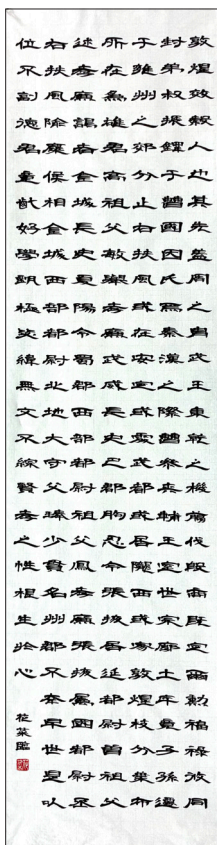 敦煌效穀人也其先蓋周之胄武王秉乾之機翦伐殷商既定爾勳福祿攸同
封弟叔振鐸于曹國因氏焉秦漢之際曹參夾輔王室世宗廓土斥竟子孫遷
于雍州之郊分止右扶風或在安定或處武都或居隴西或家敦煌枝分葉布
所在為雄君高祖父敏舉孝廉武威長史巴郡朐忍令張掖居延都尉曾祖父
述孝廉謁者金城長史夏陽令蜀郡西部都尉祖父鳳孝廉張掖屬國都尉丞
右扶風隃麋侯相金城西部都尉北地大守父琫少貫名州郡不幸早世是以
位不副德君童齓好學甄極毖緯無文不綜賢孝之性根生於心
臨